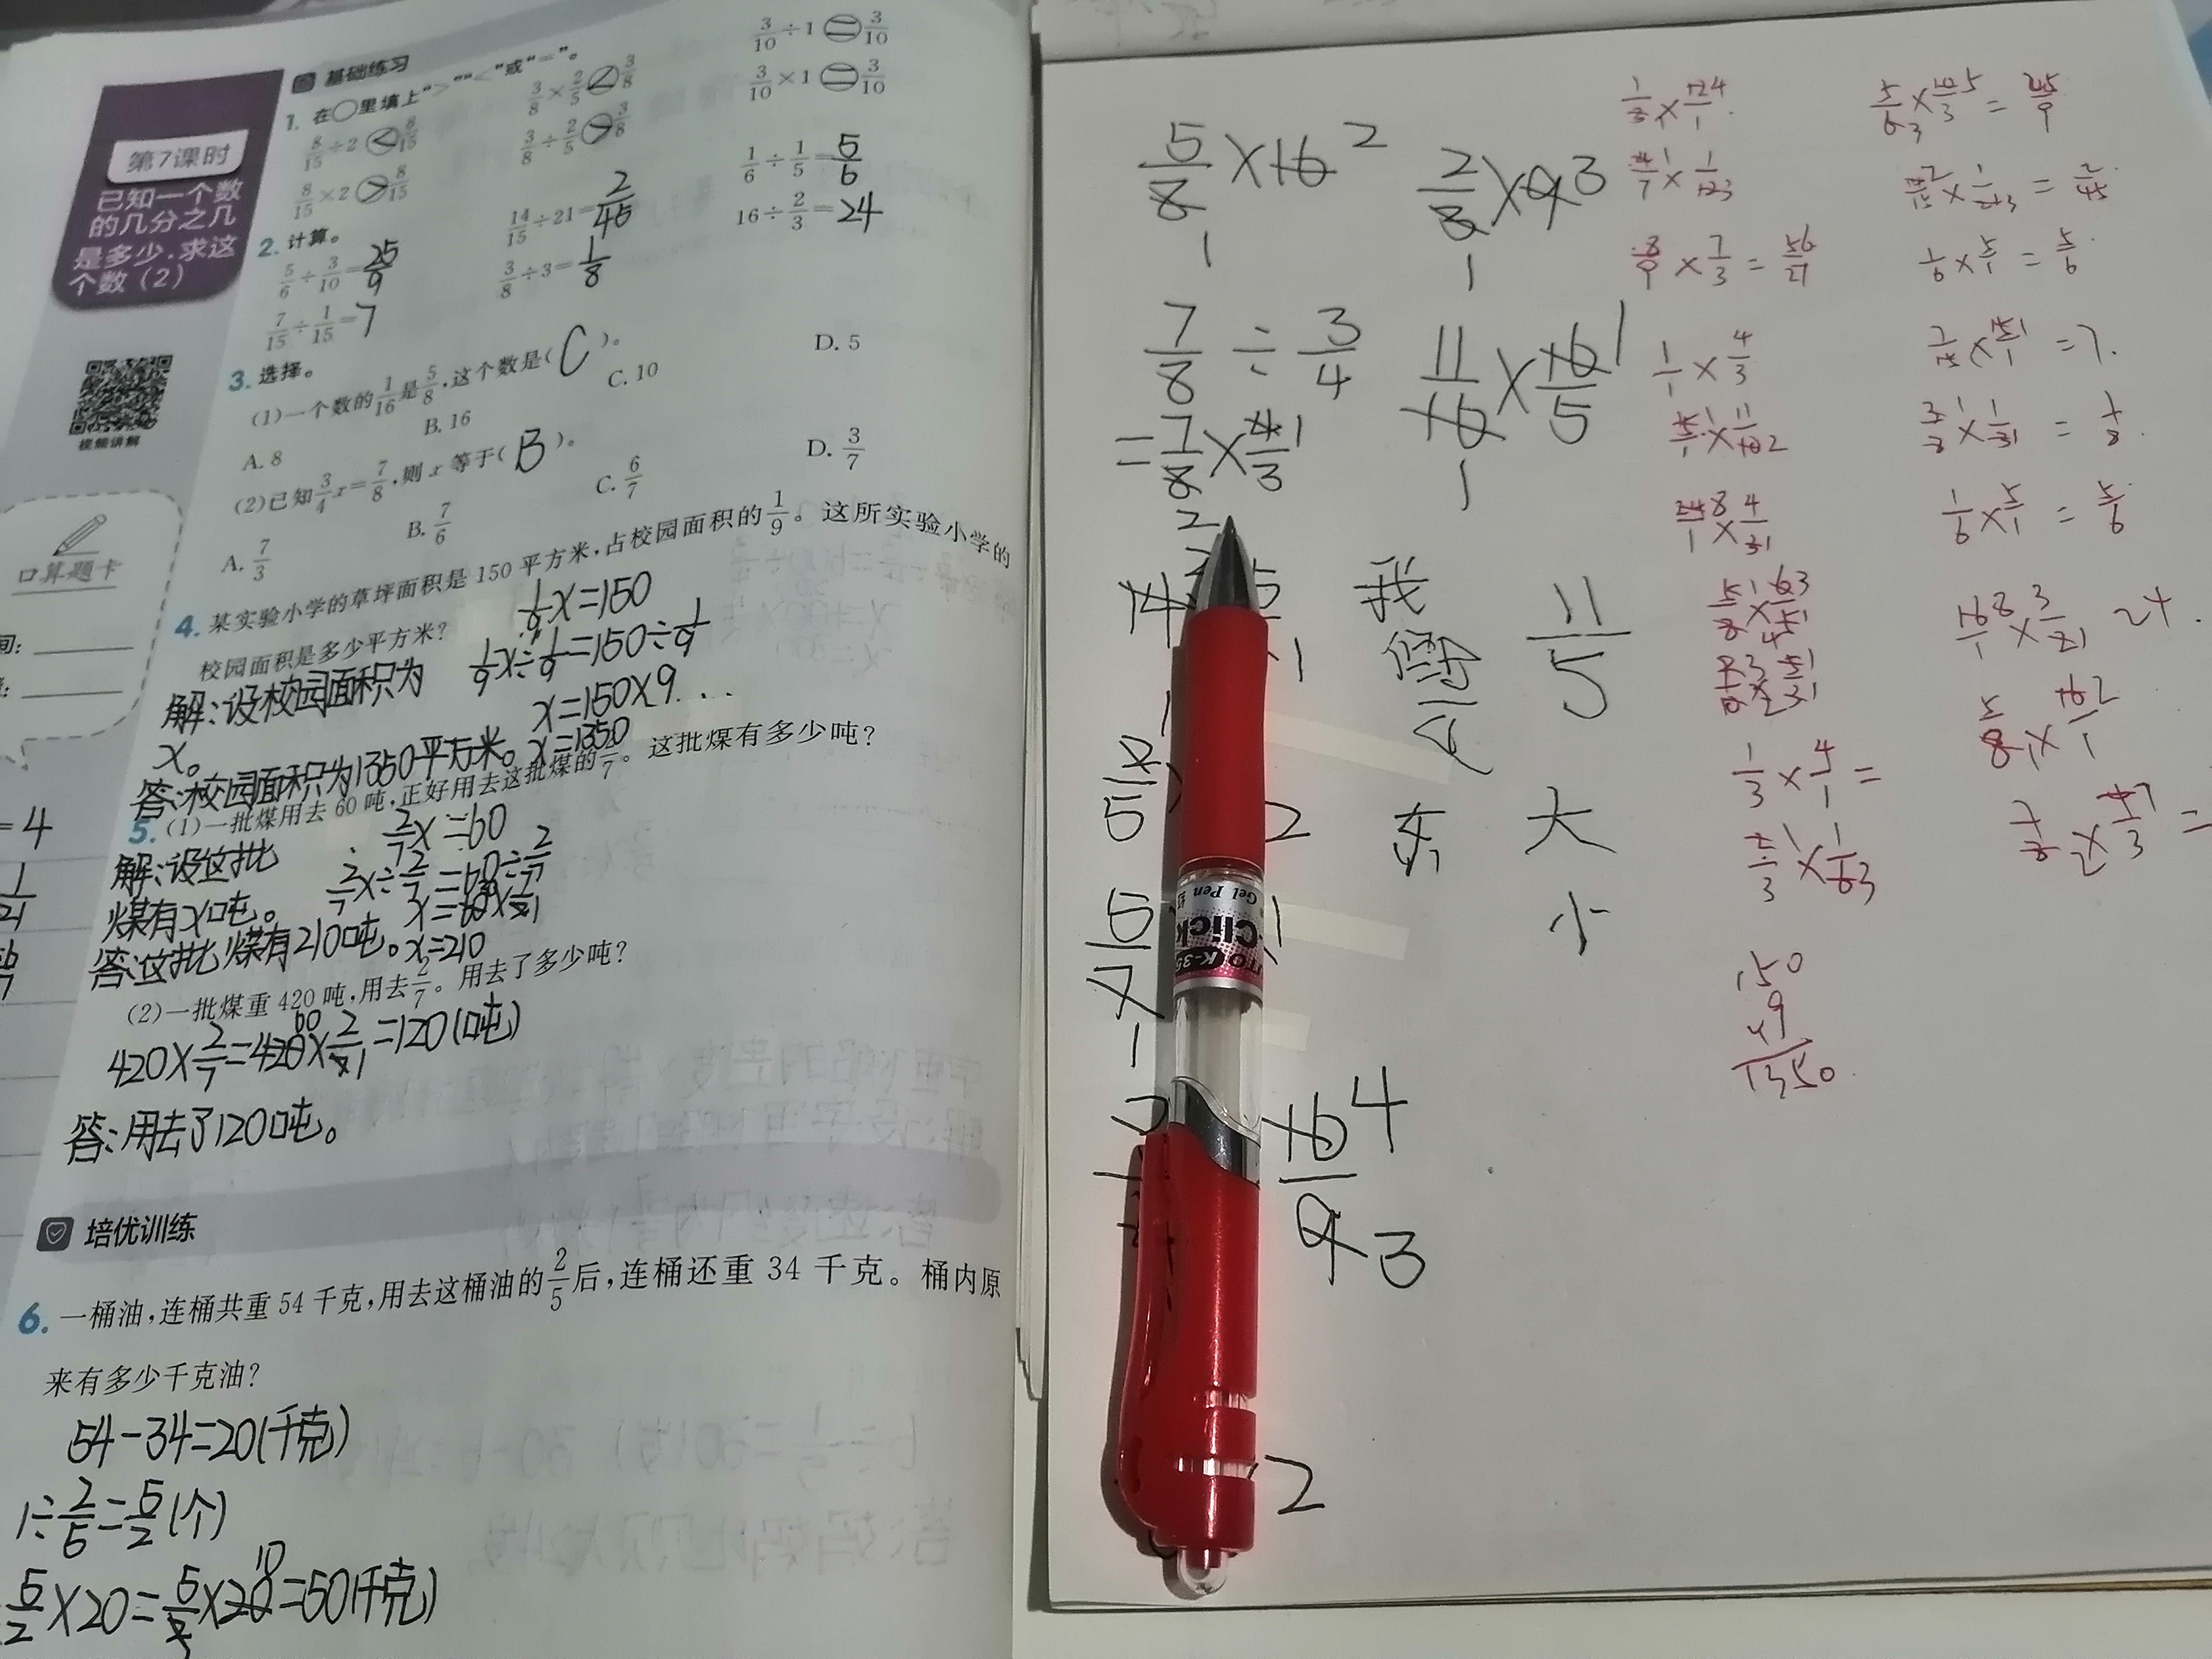 基础练习
第7课时
已知一个数
的几分之几
是多少,求这
个数(2)
视频讲解
口算题卡
1. 在○里填上“>”“<”或“=”。
8/15÷2 < 8/15
3/8×2/5 < 3/8
3/10÷1 = 3/10
8/15×2 > 8/15
3/8÷2/5 > 3/8
3/10×1 = 3/10
2. 计算。
5/6÷3/10=25/9
14/15÷21=2/45
1/6÷1/5=5/6
7/15÷1/15=7
3/8÷3=1/8
16÷2/3=24
3. 选择。
(1)一个数的1/16是5/8,这个数是( C )。
A. 8 B. 16 C. 10 D. 5
(2)已知3/4x=7/8,则x等于( B )。
A. 7/3 B. 7/6 C. 6/7 D. 3/7
4. 某实验小学的草坪面积是150平方米,占校园面积的1/9。这所实验小学的
校园面积是多少平方米?
解:设校园面积为
x。
1/9x=150
1/9x÷1/9=150÷1/9
x=150×9
x=1350
答:校园面积为1350平方米。
5. (1)一批煤用去60吨,正好用去这批煤的2/7。这批煤有多少吨?
解:设这批
煤有x吨。
2/7x=60
2/7x÷2/7=60÷2/7
x=210
答:这批煤有210吨。
(2)一批煤重420吨,用去2/7。用去了多少吨?
420×2/7=420×2/7=120(吨)
答:用去了120吨。
培优训练
6. 一桶油,连桶共重54千克,用去这桶油的2/5后,连桶还重34千克。桶内原
来有多少千克油?
54-34=20(千克)
1÷2/5=5/2(个)
5/2×20=5/2×20=50(千克)
5/8×16 2
2/3×9 3
7/8÷3/4
=7/8×4/3
11/16×16/5
11/5
我
大
小
16 4
9 3
2
Click
Gel Pen
K-35
8/9×7/3=56/27
1/1×4/3
1/3×4/1=
150
×9
1350
5/6×10/3=25/9
=2/45
1/6×5/1=5/6
7/15×15/1=7
3/8×1/3=1/8
1/6×5/1=5/6
16/1×3/2 24
5/8×16/1